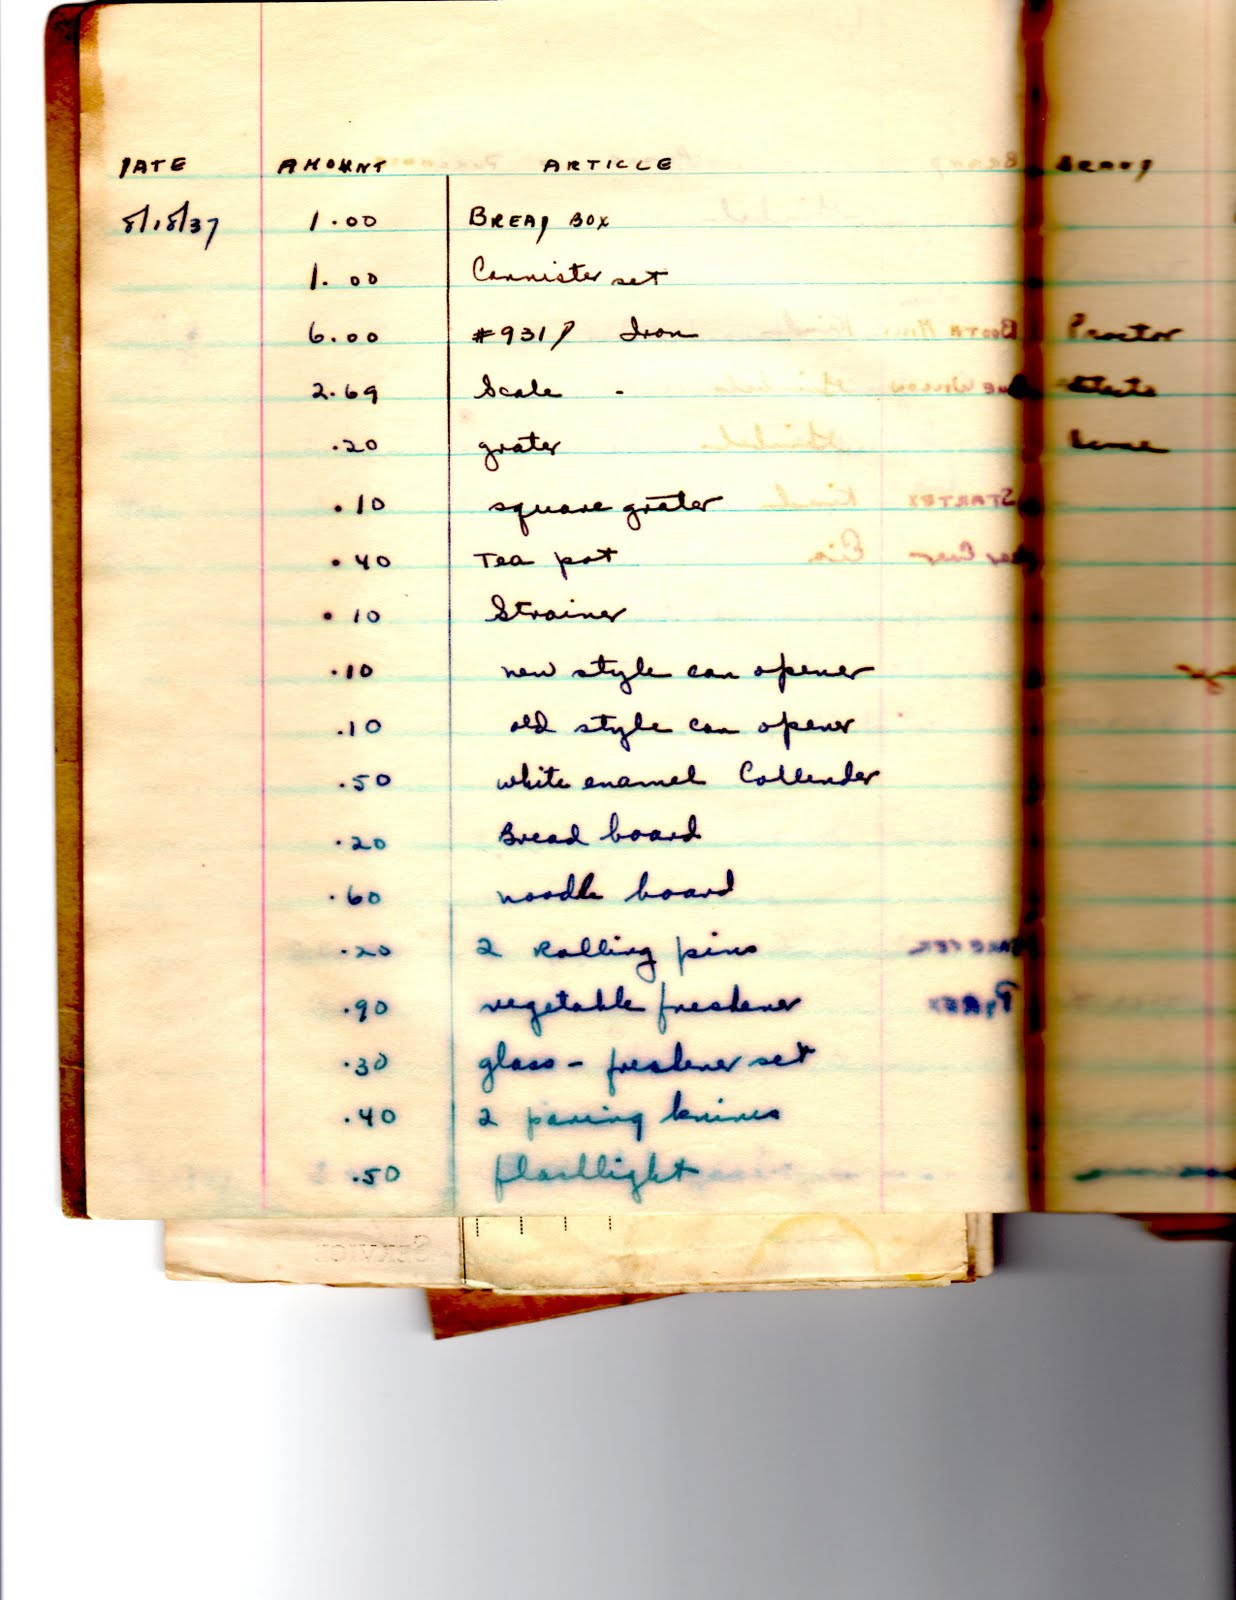 DATE AMOUNT ARTICLE BRAND
8/18/37 1.00 BREAD BOX
1.00 Cannister set
6.00 #931 Iron Proctor
2.69 Scale -
.20 grater
.10 square grater
.40 Tea pot
.10 Strainer
.10 new style can opener
.10 old style can opener
.50 white enamel Collender
.20 Bread board
.60 noodle board
.20 2 Rolling pins
.90 vegetable freshener
.30 glass - freshener set
.40 2 paring knives
.50 flashlight
SERVICE